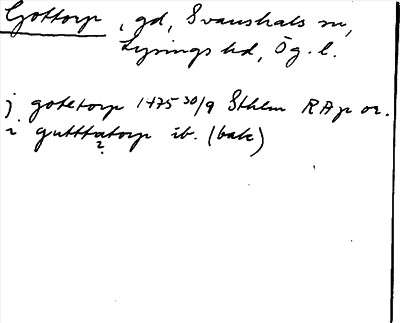 Gottorp, gd, Svanshals sn,
Lysings hd, Ög. l.
j gotetorp 1475 30/9 Sthlm RAp or.
2 gutttatorp ib. (bak)
?